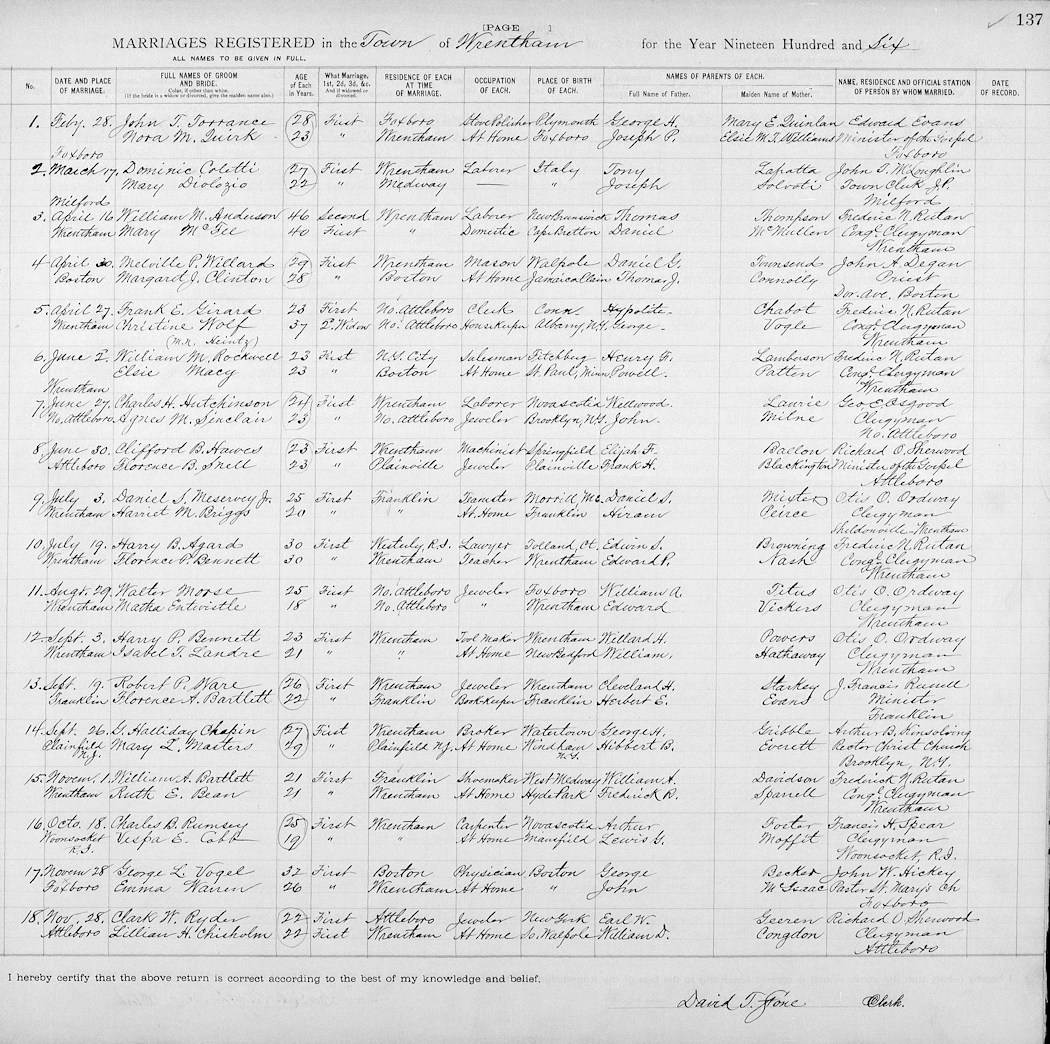 137
[PAGE ]
MARRIAGES REGISTERED in the Town of Wrentham for the Year Nineteen Hundred and Six
ALL NAMES TO BE GIVEN IN FULL.
No. DATE AND PLACE OF MARRIAGE. FULL NAMES OF GROOM AND BRIDE. (If the bride is a widow or divorced, give the maiden name also.) AGE of Each in Years. What Marriage, 1st, 2d, 3d, &c. And if widowed or divorced. RESIDENCE OF EACH AT TIME OF MARRIAGE. OCCUPATION OF EACH. PLACE OF BIRTH OF EACH. NAMES OF PARENTS OF EACH. Full Name of Father. Maiden Name of Mother. NAME, RESIDENCE AND OFFICIAL STATION OF PERSON BY WHOM MARRIED. DATE OF RECORD.
1. Feby. 28. John T. Torrance 28 First Foxboro Stove Polisher Plymouth George H. Mary E. Quinlan Edward Evans
Nora M. Quirk 23 " Wrentham At Home Foxboro Joseph P. Elsie M. T. Williams Minister of the Gospel
Foxboro Foxboro
2. March 17. Dominic Coletti 27 First Wrentham Laborer Italy Tony Lapatta John T. McLoughlin
Mary Diolozio 22 " Medway — " Joseph Solvoti Town Clerk J.P.
Milford Milford
3. April 16 William M. Anderson 46 Second Wrentham Laborer New Brunswick Thomas Thompson Frederic N. Rutan
Wrentham Mary McGee 40 First " Domestic Cape Bretton Daniel McMullen Congl. Clergyman
Wrentham
4 April 30. Melville P. Willard 29 First Wrentham Mason Walpole Daniel G. Townsend John A. Degan
Boston Margaret J. Clinton 28 " Boston At Home Jamaica Plain Thomas J. Connolly Priest
Dor. Ave. Boston
5. April 27. Frank E. Girard 23 First No. Attleboro Clerk Conn. Hypolite. Chabot Frederic N. Rutan
Wrentham Christine Wolf 37 2d Widow No. Attleboro Housekeeper Albany, N.Y. George. Vogle Congl Clergyman
(M.N. Heintz) Wrentham
6. June 2. William M. Rockwell 23 First N.Y. City Salesman Fitchburg Henry F. Lamberson Frederic N. Rutan
Elsie Macy 23 " Boston At Home St. Paul, Minn. Powell. Patten Congl. Clergyman
Wrentham Wrentham
7. June 27. Charles H. Hutchinson 24 First Wrentham Laborer Novascotia Wellwood. Laurie Geo. E. Osgood
No. Attleboro Agnes M. Sinclair 23 " No. Attleboro Jeweler Brooklyn, N.Y. John. Milne Clergyman
No. Attleboro
8. June 30. Clifford B. Hawes 23 First Wrentham Machinist Springfield Elijah F. Ballon Richard O. Sherwood
Attleboro Florence B. Snell 23 " Plainville Jeweler Plainville Frank H. Blackington Minister of the Gospel
Attleboro
9. July 3. Daniel S. Meservey Jr. 25 First Franklin Teamster Morrill, Me. Daniel S. Mixter Otis O. Ordway
Wrentham Harriet M. Briggs 20 " " At Home Franklin Hiram Peirce Clergyman
Sheldonville, Wrentham
10. July 19. Harry B. Agard 30 First Westerly, R.I. Lawyer Tolland, Ct. Edwin S. Browning Frederic N. Rutan
Wrentham Florence P. Bennett 30 " Wrentham Teacher Wrentham Edward P. Nash Congl. Clergyman
Wrentham
11. Augt. 29. Walter Morse 25 First No. Attleboro Jeweler Foxboro William A. Titus Otis O. Ordway
Wrentham Matha Entwistle 18 " No. Attleboro " Wrentham Edward Vickers Clergyman
Wrentham
12. Sept. 3. Harry P. Bennett 23 First Wrentham Tool Maker Wrentham Willard H. Powers Otis O. Ordway
Wrentham Isabel T. Landre 21 " " At Home New Bedford William. Hathaway Clergyman
Wrentham
13. Sept. 19. Robert P. Ware 26 First Wrentham Jeweler Wrentham Cleveland H. Starkey J. Francis Russell
Franklin Florence A. Bartlett 22 " Franklin Bookkeeper Franklin Herbert E. Evans Minister
Franklin
14. Sept. 26. G. Halliday Chapin 27 First Wrentham Broker Watertown George H. Gribble Arthur B. Kinsolving
Plainfield Mary L. Masters 29 " Plainfield N.J. At Home Windham Hibbert B. Everett Rector Christ Church
N.J. N.Y. Brooklyn, N.Y.
15. Novem. 1. William A. Bartlett 21 First Franklin Shoemaker West Medway William A. Davidson Frederick N. Rutan
Wrentham Ruth E. Bean 21 " Wrentham At Home Hyde Park Frederick R. Sparrell Congl. Clergyman
Wrentham
16. Octo. 18. Charles B. Rumsey 25 First Wrentham Carpenter Novascotia Arthur Foster Francis H. Spear
Woonsocket Vespa E. Cobb 19 " " At Home Mansfield Lewis G. Moffit Clergyman
R.I. Woonsocket, R.I.
17. Novem 28 George L. Vogel 32 First Boston Physician Boston George Becker John W. Hickey
Foxboro Emma Warren 26 " Wrentham At Home " John McIsaac Pastor St. Mary's Ch
Foxboro
18. Nov. 28. Clark W. Ryder 22 First Attleboro Jeweler New York Earl W. Geeren Richard O. Sherwood
Attleboro Lillian H. Chisholm 22 First Wrentham At Home So. Walpole William D. Congdon Clergyman
Attleboro
I hereby certify that the above return is correct according to the best of my knowledge and belief.
David T. Clerk.